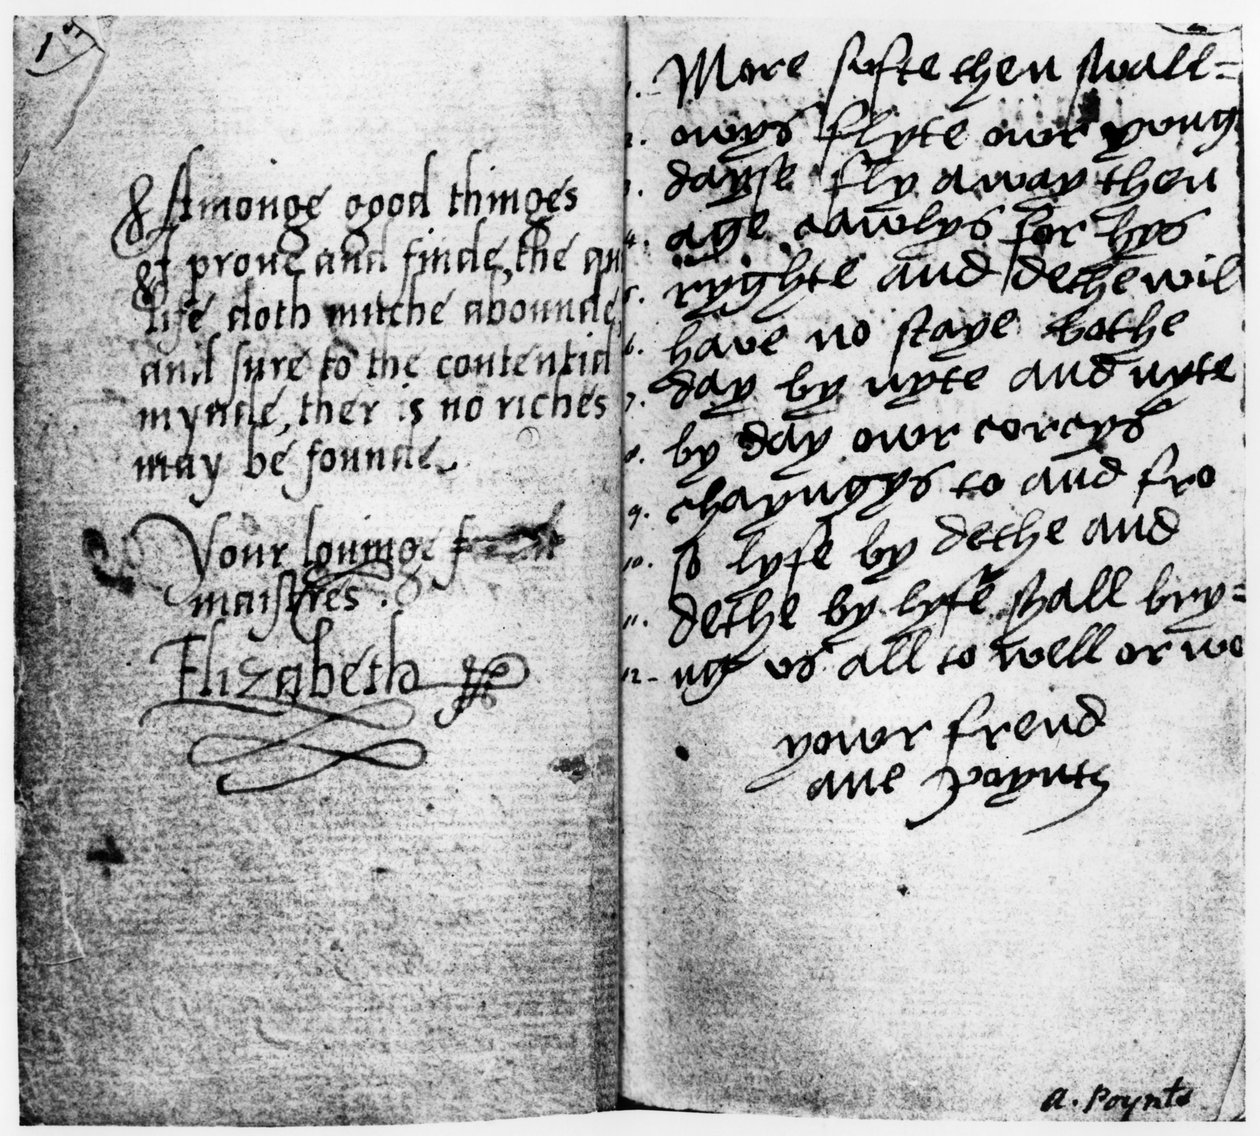 1
Amonge good thinges
I prove and finde, the qu
life doth mutche abounde,
and sure to the contentid
mynde, ther is no riches
may be founde.
Your lovinge
maistres.
Elizabeth
1. More swfte then swall=
2. owys flyte owr yong
3. dayse fly away then
4. age cawlys for hys
5. ryghte and dethe wil
6. have no staye bothe
7. day by nyte and nyte
8. by day owr corcys
9. chayngys to and fro
10. so lyfe by dethe and
11. dethe by lyfe shall bry=
12. ng us all to well or wo
yowr frend
ane poynts
a. Poynts